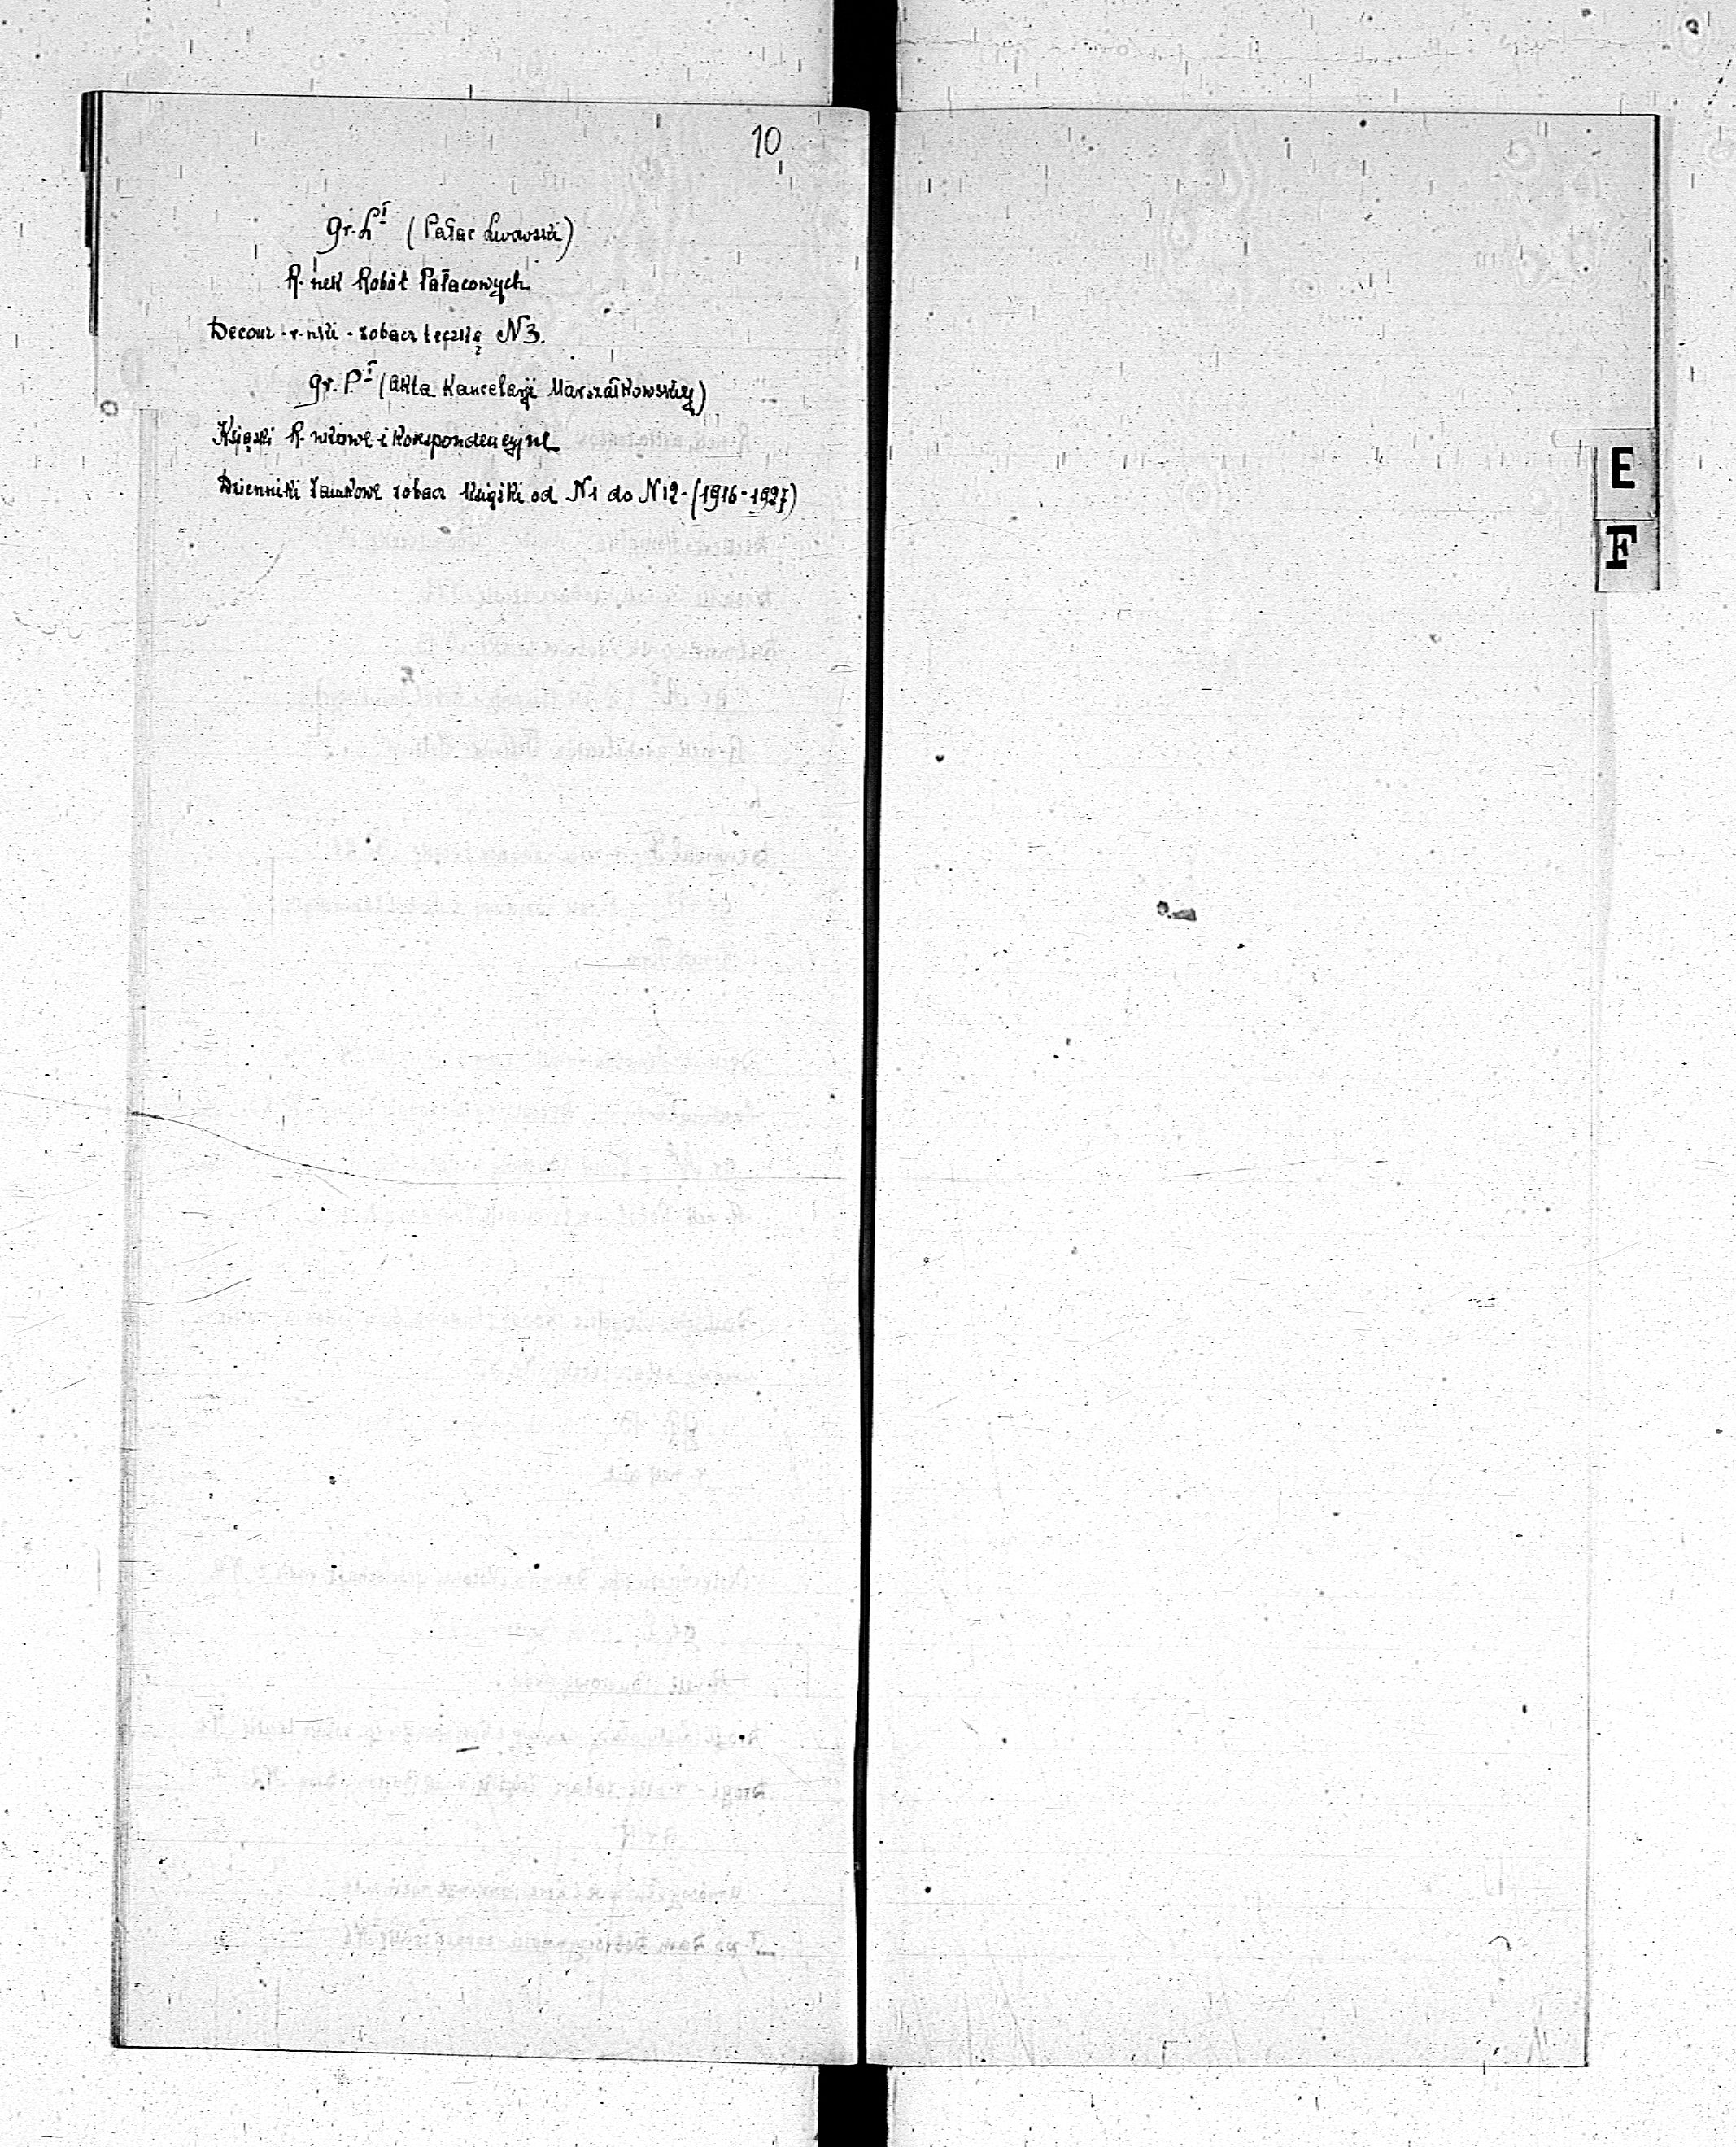 10
gr. L I (Pałac Lwowski)
R-nek Robót Pałacowych
Decour - r-nki - zobacz teczkę N3.
gr. P I (Akta Kancelarji Marszałkowskiej)
Książki R-nkowe i Korespondencyjne
Dzienniki Zamkowe zobacz książki od N1 do N12 - (1916-1927)
E
F